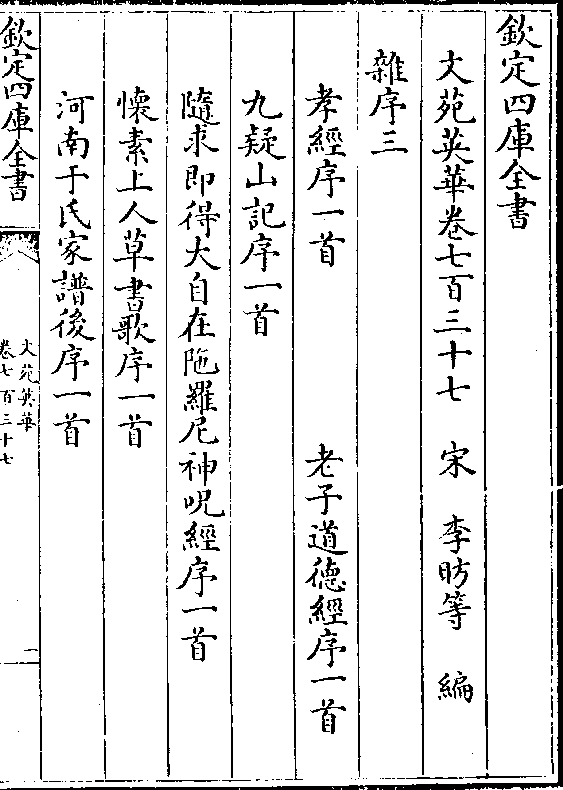 欽定四庫全書
文苑英華卷七百三十七 宋 李昉等 編
雜序三
孝經序一首 老子道德經序一首
九疑山記序一首
隨求即得大自在陁羅尼神呪經序一首
懷素上人草書歌序一首
河南于氏家譜後序一首
欽定四庫全書
文苑英華
卷七百三十七
一